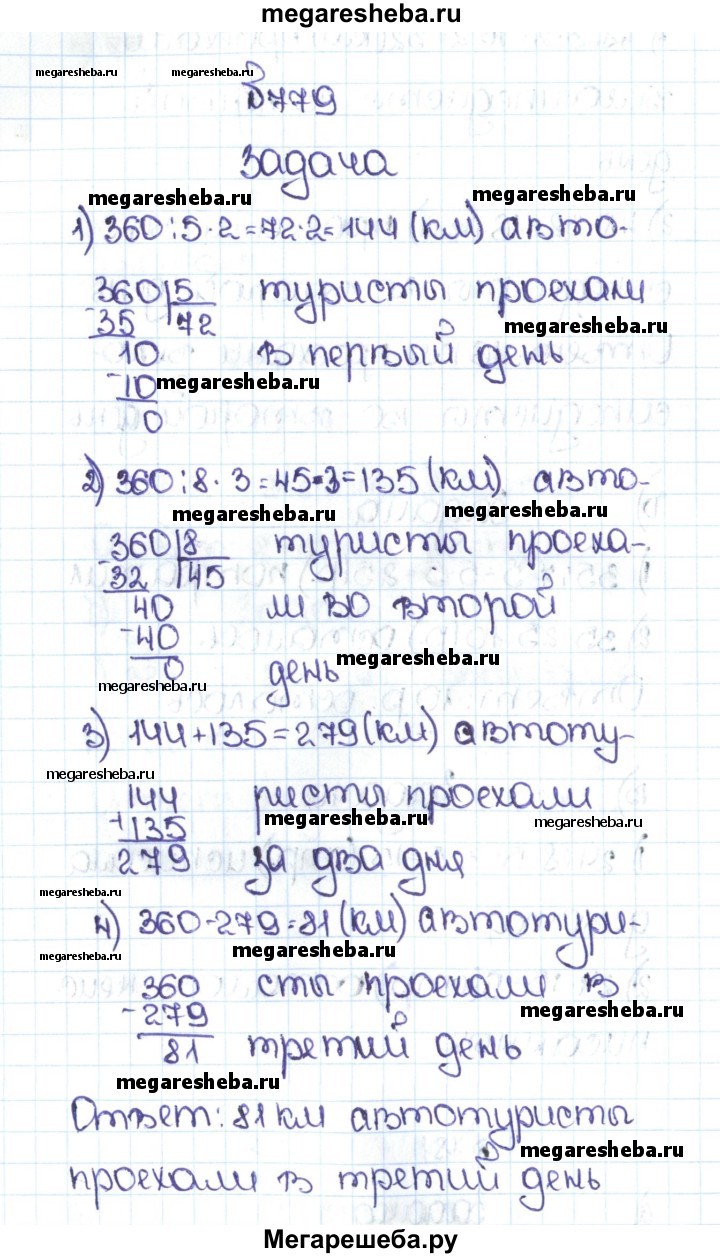 megaresheba.ru
megaresheba.ru megaresheba.ru
№779
Задача
megaresheba.ru megaresheba.ru
1) 360:5·2=72·2=144 (км) авто-
360 5 туристы проехали
-35 72 megaresheba.ru
10 в первый день
-10 megaresheba.ru
0
2) 360:8·3=45·3=135 (км) авто-
megaresheba.ru megaresheba.ru
360 8 туристы проеха-
-32 45
40 ли во второй
-40
0 день megaresheba.ru
megaresheba.ru
3) 144+135=279(км) автоту-
megaresheba.ru
144 ристы проехали
+135 megaresheba.ru megaresheba.ru
279 за два дня
megaresheba.ru
4) 360-279=81(км) автотури-
megaresheba.ru megaresheba.ru
360 сты проехали в
-279 megaresheba.ru
81 третий день
megaresheba.ru
Ответ: 81 км автотуристы
megaresheba.ru
проехали в третий день
Мегарешеба.ру